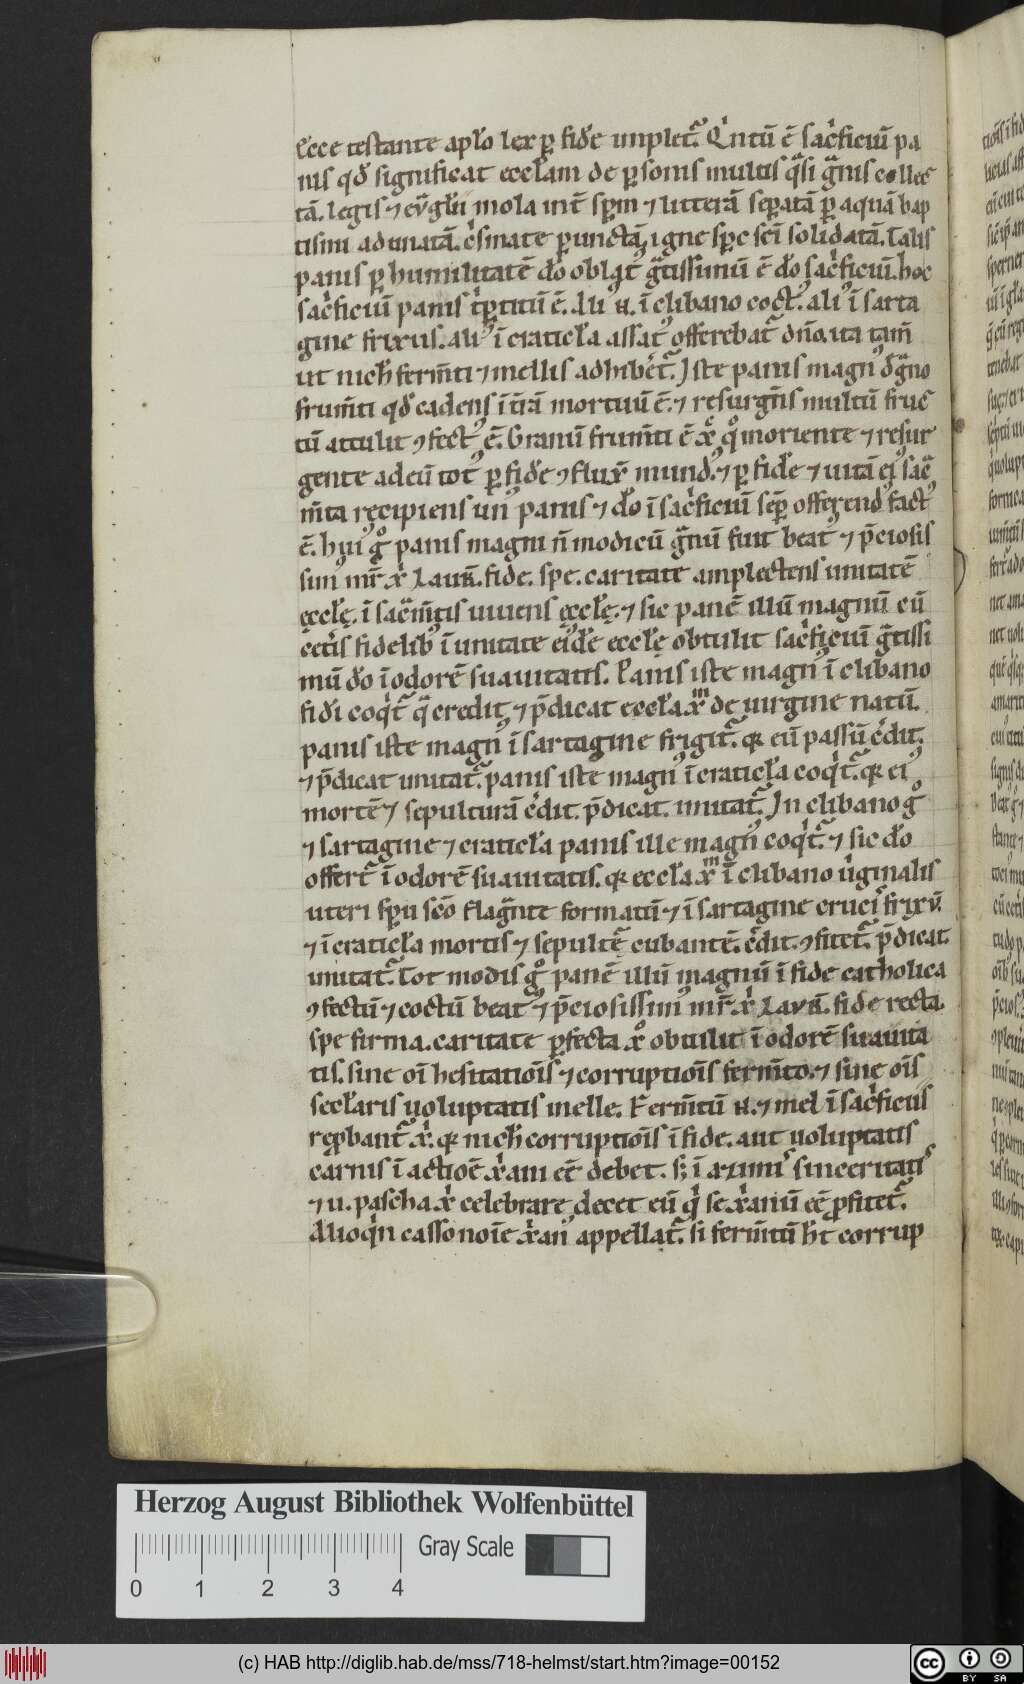 Ecce testante apl̄o lex ꝑ fidē implet᷑. Qͥntū ē sac͛ficiū pa
nis qd̄ significat eccl̄am de ꝑsonis multis q̄si g̃nis collec
tā. legis ⁊ evg̃lii mola int̄ sp̄m ⁊ litterā sepatā ꝑ aquā bap
tismi adunatā. c͛smate ꝑunctā, igne sp̄c sc̄i solidatā. Talis
panis ꝑ humilitatē dō oblat᷒ g̃tissimū ē dō sac͛ficiū. hoc
sac͛ficiū panis tͥꝑtitū ē. Ali᷒ .n. ī clibano coct᷒. ali᷒ ī sarta
gine frixus. ali᷒ ī craticl̄a assat᷒ offerebat᷑ dn̄o. ita tam̄
ut nich̄ ferm̄ti ⁊ mellis adhibet᷑. Iste panis magn᷒ ē g̃no
frum̄ti qd̄ cadens ī t̄rā mortuū ē. ⁊ resurgn̄s multū fruc
tū attulit ꝯfect᷒ ē. Granū frum̄ti ē xp̄c q̊ moriente ⁊ resur
gente ad eū tot᷒ ꝑ fidē ꝯflux̄ mund᷒. ⁊ ꝑ fidē ⁊ uitā ei᷒ sac̄
m̄ta recipiens un᷒ panis ⁊ dō ī sac͛ficiū sep̄ offerend᷒ fact᷒
ē. hui᷒ g̊ panis magni n̄ modicū g̃nū fuit beat᷒ ⁊ p̄ciosis
sim᷒ mr̄ xp̄i Laur̄. fide. spe. caritate amplectens unitatē
ęccl̄ę. ī sac̄m̄tis uiuens ęccl̄ę. ⁊ sic panē illū magnū cū
cet͛is fidelib᷒ ī unitate ei᷒dē eccl̄ę obtulit sac͛ficiū g̃tissi
mū dō ī odorē suauitatis. Panis iste magn᷒ ī clibano
fidi coqͥt᷑ q̃ credit ⁊ p̄dicat eccl̄a xp̄m de uirgine natū.
panis iste magn᷒ ī sartagine frigit᷑. qꝛ eū passū c͛dit.
⁊ p̄dicat imitat᷑. panis iste magn᷒ ī craticl̄a coqͥt᷑. qꝛ ei᷒
mortē ⁊ sepulturā c͛dit. p̄dicat. imitat᷑. In clibano g̊
⁊ sartagine ⁊ craticl̄a panis ille magn᷒ coqͥt᷑. ⁊ sic dō
offert᷑ ī odorē suauitatis. qꝛ eccl̄a xp̄m ī clibano u͛ginalis
uteri sp̄u sc̄o flag̃nte formatū ⁊ ī sartagine cruci᷒ frixū.
⁊ ī craticl̄a mortis ⁊ sepult᷑ę cubantē. c͛dit. ꝯfitet᷑. p̄dicat.
imitat᷑. Tot modis g̊ panē illū magnū ī fide catholica
ꝯfectū ⁊ coctū beat᷒ ⁊ p̄ciosissim᷒ mr̄ xp̄i Laur̄. fide recta.
spe firma. caritate ꝑfecta xp̄o obtulit ī odorē suauita
tis. sine oī hesitatiōis ⁊ corruptiōis ferm̄to. ⁊ sine oīs
secl̄aris uoluptatis melle. Ferm̄tū .n. ⁊ mel ī sac͛ficiis
reꝓbant᷑ xp̄i. qꝛ nich̄ corruptiōis ī fide. aut uoluptatis
carnis ī actiōē xp̄iani eē debet. sꝫ ī azimis sinceritatis
⁊ u. pascha xp̄i celebrare decet eū qͥ se xp̄ianū eē ꝓfitet᷑.
Alioqͥn casso noīe xp̄ian᷒ appellat᷑. si ferm̄tū h̄t corrup
Herzog August Bibliothek Wolfenbüttel
Gray Scale
0 1 2 3 4
(c) HAB http://diglib.hab.de/mss/718-helmst/start.htm?image=00152
cc BY SA